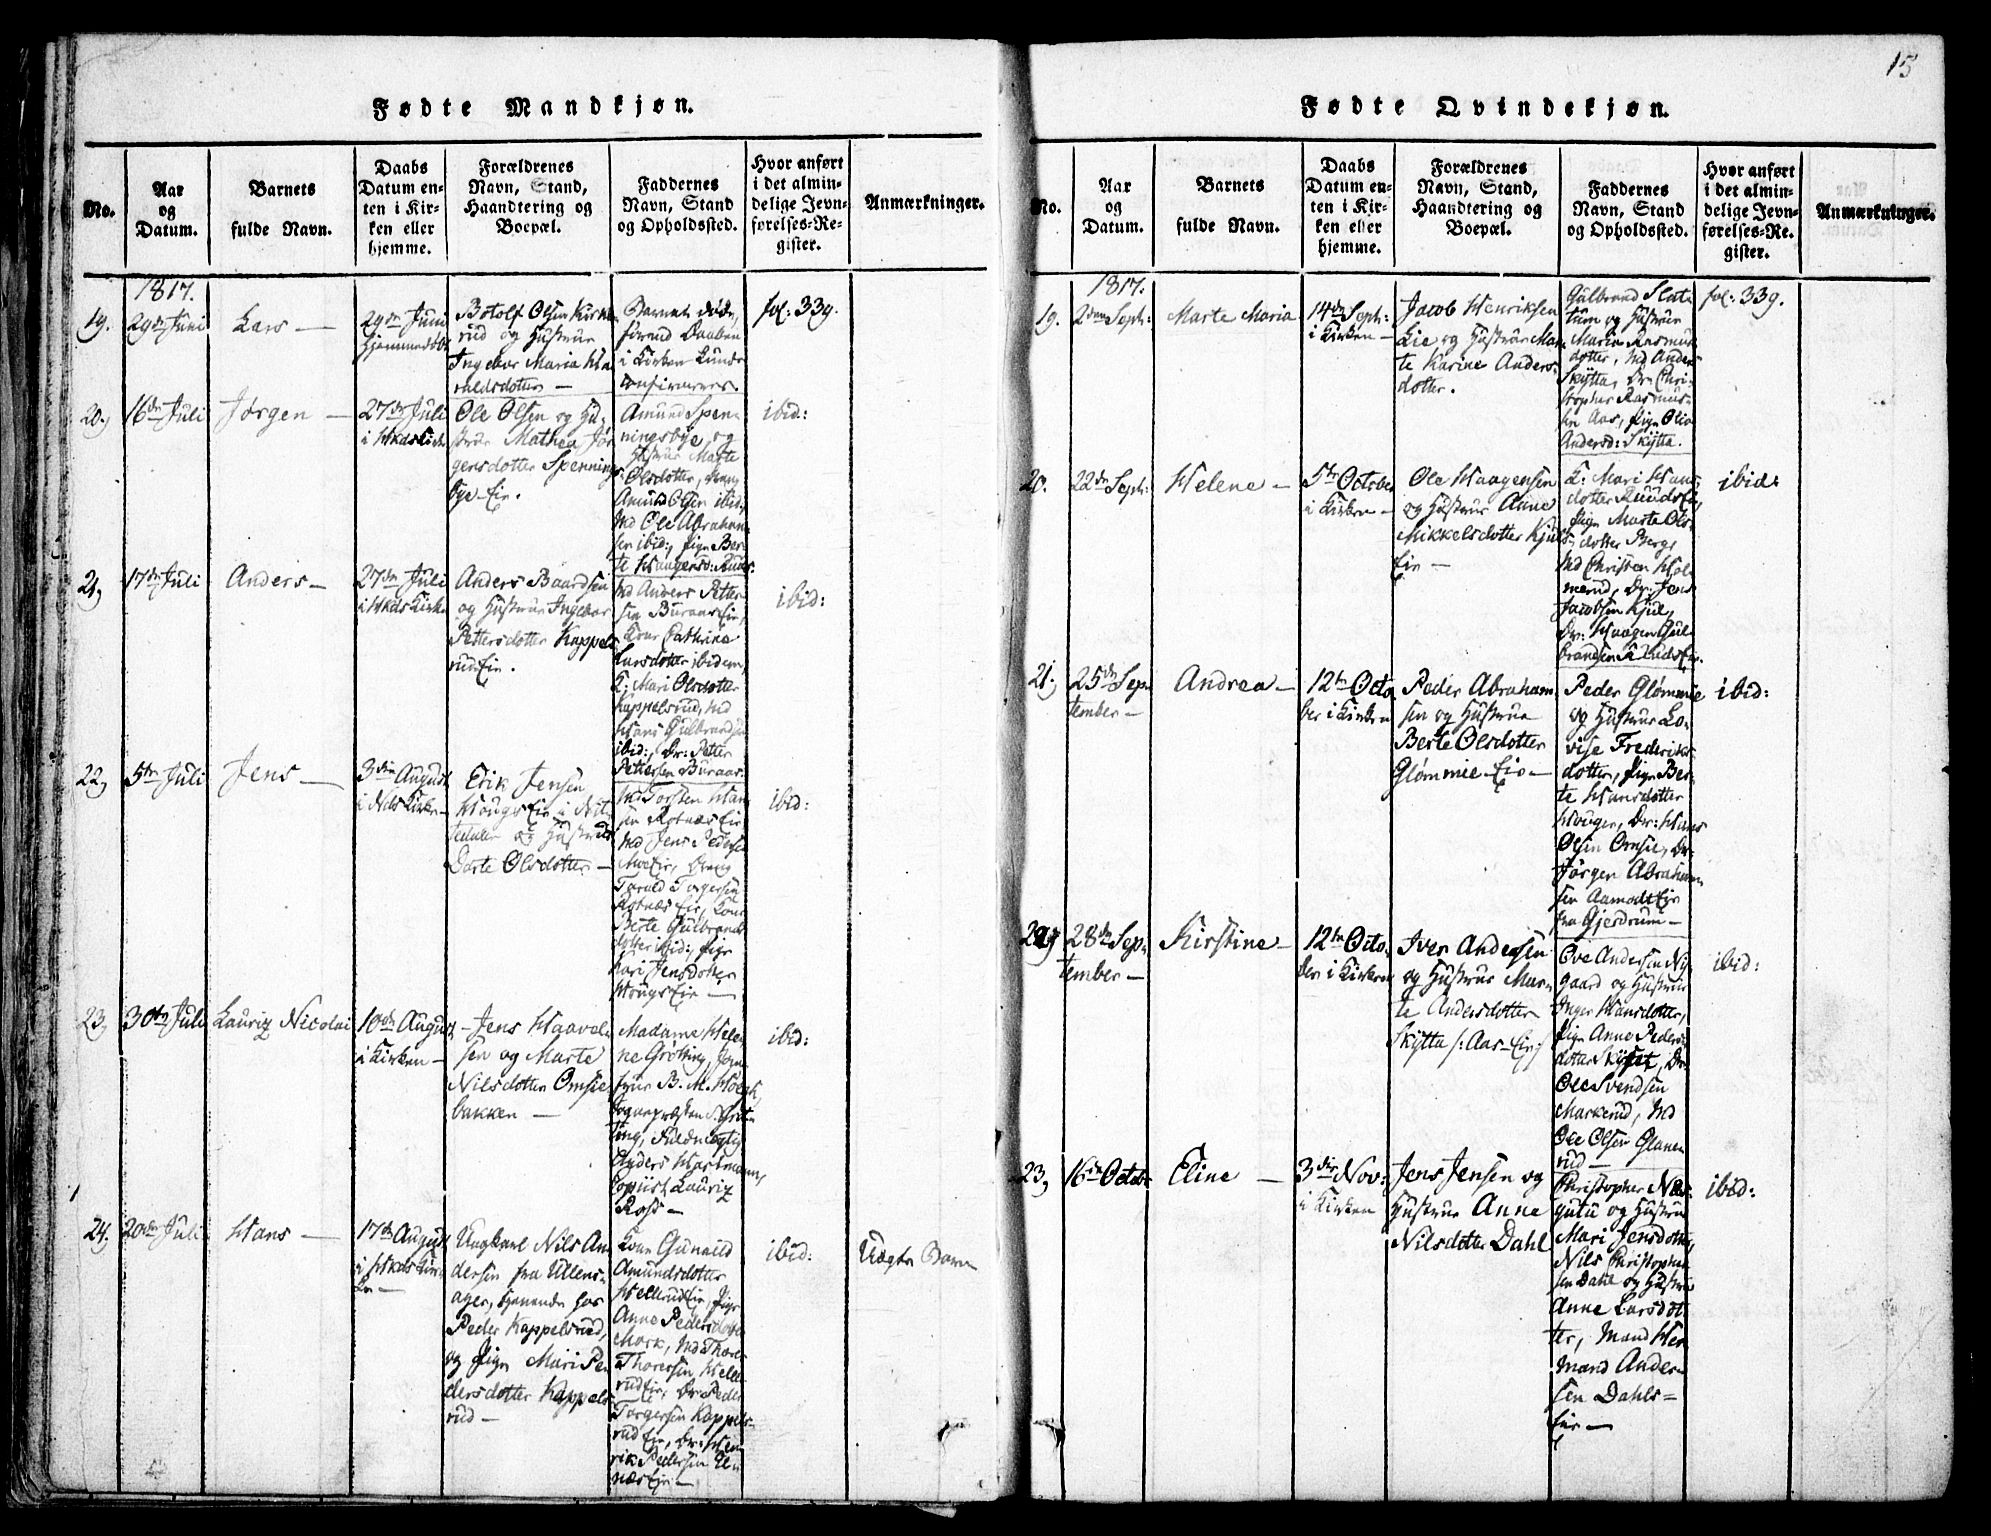 15
Fødte Mandkjøn.
No.
Aar
og
Datum.
Barnets
fulde Navn.
Daabs
Datum en-
ten i Kir-
ken eller
hjemme.
Forældrenes
Navn, Stand,
Haandtering og
Boepæl.
Faddernes
Navn, Stand
og Opholdssted.
Hvor anført
i det almin-
delige Jevn-
førelses-Re-
gister.
Anmærkninger.
1817.
19.
29de Juni
Lars —
29de Juni
hjemmedøbt
Botolf Olsen Kirke-
rud og Hustrue
Ingebor Maria Ha-
raldsdotter —
Barnet døde,
førend Daaben
i Kirken kunde
confirmeres.
fol: 339.
20,
16de Juli
Jørgen —
27de Juli
i Hkds Kirke
Ole Olsen og Hu-
strue Mathea Jør-
gensdotter Spennings-
bye-Eie.
Amund Spen-
ningsbye, og
Hustrue Marte
Olsdotter, Dreng
Amund Olsen ibid:,
Md Ole Abraham-
sen ibid:, Pige Ber-
te Haagensd: Ruds.
ibid:
21,
17de Juli
Anders —
27de Juli
i Hkds Kirke
Anders Baardsen
og Hustrue Ingebor
Pettersdotter Kappels-
rud Eie.
Md Anders Petter-
sen Buraas Eie,
Kone Cathrine
Larsdotter ibidem,
K: Mari Olsdotter
Kappelsrud, Md
Hans Gulbrandsen
ibid:, Dr: Petter
Pettersen Buraas.
ibid:
22,
5te Juli
Jens —
3die August
i Nds Kirke —
Erik Jensen
Hougs Eie i Nit-
tedalen og Hustrue
Dorte Olsdotter —
Md Torsten Han-
sen Rotnæs Eie
Md Jens Peders:
Moe Eie, Dreng
Tarald Torgersen
Rotnæs Eie, Kone
Berte Gulbrands-
dotter ibid:, Pige
Kari Jensdotter
Hougs Eie —
ibid:
23,
30te Juli
Lauriz Nicolai
10de August
i Kirken —
Jens Haavel-
sen og Marte
Nilsdotter Omsie-
bakken —
Madame Hele-
ne Grøtting, Jom-
frue B. M. Hoegh,
Sognepræsten N. Grøt-
ting, Fuldmægtig
Anders Hartmann,
Copiist Lauriz
Ross —
ibid:
24.
20de Juli
Hans —
17de August
i Hkds Kir-
ke —
Ungkarl Nils An-
dersen fra Ullens-
ager, tjenende hos
Peder Kappelsrud,
og Pige Mari Pe-
dersdotter Kappels-
rud —
Kone Gunild
Amundsdotter
Hellerud Eie, Pige
Anne Pedersdotter
Mork, Md Thore
Thoresen Helle-
rud Eie, Dr: Peder
Torgersen Kappels-
rud Eie, Dr: Hen-
rik Pedersen El-
næs Eie —
ibid:
Uægte Barn
Fødte Qvindekjøn.
No.
Aar
og
Datum.
Barnets
fulde Navn.
Daabs
Datum en-
ten i Kir-
ken eller
hjemme.
Forældrenes
Navn, Stand,
Haandtering og
Boepæl.
Faddernes
Navn, Stand
og Opholdssted.
Hvor anført
i det almin-
delige Jevn-
førelses-Re-
gister.
Anmærkninger.
1817.
19.
2den Sept:
Marte Maria
14de Sept:
i Kirken —
Jacob Henriksen
Lie og Hustrue Mar-
te Karine Anders-
dotter.
Gulbrand Slat-
tum og Hustrue
Maria Rasmus-
dotter, Md Anders
Skytta, Dr: Chri-
stopher Rasmus-
sen Aas, Pige Olia
Andersd: Skytta.
fol: 339.
20.
22de Sept:
Helene —
5te October
i Kirken —
Ole Haagensen
og Hustrue Anne
Mikkelsdotter Kjuls-
Eie —
K: Mari Hans-
dotter Ruuds Eie,
Pige Marte Ols-
dotter Berg,
Md Christen Hol-
merud, Dr: Jens
Jacobsen Kjul,
Dr: Haagen Gul-
brandsen Ruds Eie.
ibid:
21.
25de Sep-
tember —
Andrea —
12te Octo-
ber i Kirken
Peder Abraham-
sen og Hustrue
Berte Olsdotter
Glømmie Eie —
Peder Glømmie
og Hustrue Lo-
vise Frederiks-
dotter, Pige Ber-
te Hansdotter
Hougen, Dr: Hans
Olsen Omsie, Dr:
Jørgen Abraham-
sen Aamodt Eie
fra Gjerdrum —
ibid:
22,
28de Sep-
tember —
Kirstine —
12te Octo-
ber i Kirken
Iver Andersen
og Hustrue Mar-
te Andersdotter
Skytta /: Aas-Eie
Ove Andersen Ny-
gaard og Hustrue
Inger Hansdotter,
Pige Anne Peders-
dotter Skytta, Dr:
Ole Svendsen
Markerud, Md
Ole Olsen Glane-
rud —
ibid:
23,
16de Octob:
Eline —
3die Nov:
i Kirken
Jens Jensen og
Hustrue Anne
Nilsdotter Dahl
Christopher Næs-
gutu og Hustrue
Mari Jensdotter,
Nils Christopher-
sen Dahl og Hustrue
Anne Larsdot-
ter, Mand Her-
mand Ander-
sen Dahls-
Eie —
ibid: